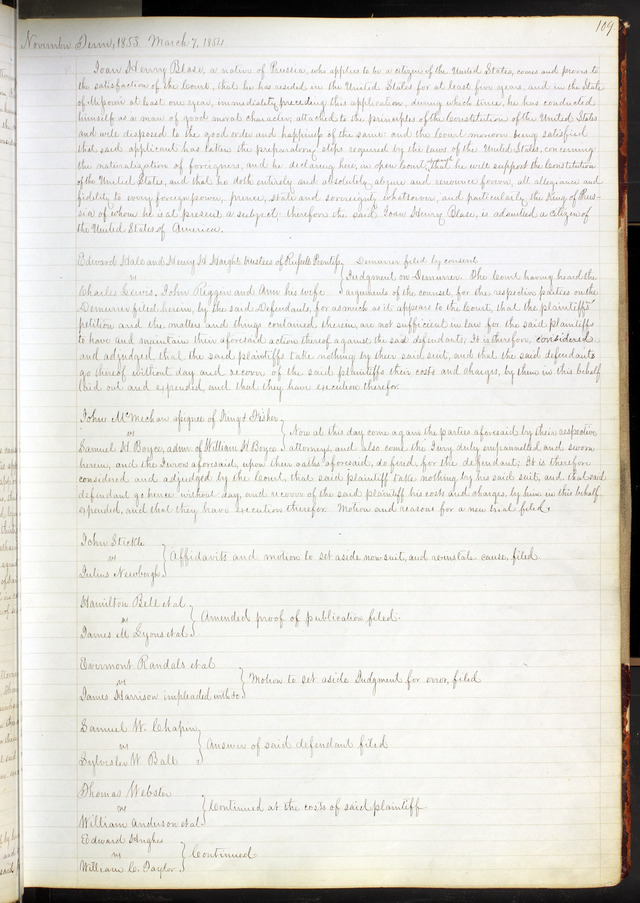 109
November Term, 1853. March 7, 1854
Joan Henry Blase, a native of Prussia, who applies to be a citizen of the United States, comes and proves to
the satisfaction of the Court, that he has resided in the United States for at least five years, and in the State
of Missouri at least one year, immediately preceding this application, during which time, he has conducted
himself as a man of good moral character, attached to the principles of the Constitution of the United States
and well disposed to the good order and happiness of the same: and the Court moreover being satisfied
that said applicant has taken the preparatory steps required by the laws of the United States, concerning
the naturalization of foreigners, and he declaring here, in open Court, that he will support the Constitution
of the United States, and that he doth entirely and absolutely abjure and renounce forever, all allegiance and
fidelity to every foreign power, prince, state and sovereignty whatsoever, and particularly the King of Prus-
sia of whom he is at present a subject: therefore the said Joan Henry Blase, is admitted a citizen of
the United States of America.
Edward Hale and Henry H Haight trustees of Prentiss Demurrer filed by consent
vs Judgment on Demurrer. The Court having heard the
Charles Lewis, John Riggin and Ann his wife arguments of the counsel for the respective parties on the
Demurrer filed herein, by the said Defendants, forasmuch as it appears to the Court, that the plaintiffs
petition and the matters and things contained therein, are not sufficient in law for the said plaintiffs
to have and maintain their aforesaid action thereof against the said defendants; It is therefore, considered
and adjudged, that the said plaintiffs take nothing by their said suit, and that the said defendants
go thereof without day and recover of the said plaintiffs their costs and charges, by them in this behalf
laid out and expended, and that they have execution therefor.
John McMechan assignee of King & Fisher
vs Now at this day come again the parties aforesaid by their respective
Samuel H Boyce, admr. of William H Boyce attorneys, and also come the Jury duly empannelled and sworn
herein, and the Jurors aforesaid, upon their oaths aforesaid, do find for the defendant; It is therefore
considered and adjudged by the Court, that said plaintiff take nothing by his said suit, and that said
defendant go hence without day, and recover of the said plaintiff his costs and charges, by him in this behalf
expended, and that they have execution therefor. Motion and reasons for a new trial filed.
John Stickle
vs Affidavits and motion to set aside non-suit, and reinstate cause, filed
Julius Newbergh
Hamilton Bell et al
vs Amended proof of publication filed.
James M Lyons et al
Evermont Randals et al
vs Motion to set aside Judgment for error, filed
James Harrison impleaded with &c.
Samuel W. Chapin
vs Answer of said defendant filed
Sylvester W. Ball
Thomas Webster
vs Continued at the costs of said plaintiff
William Anderson et al
Edward Hughes
vs Continued.
William C. Taylor